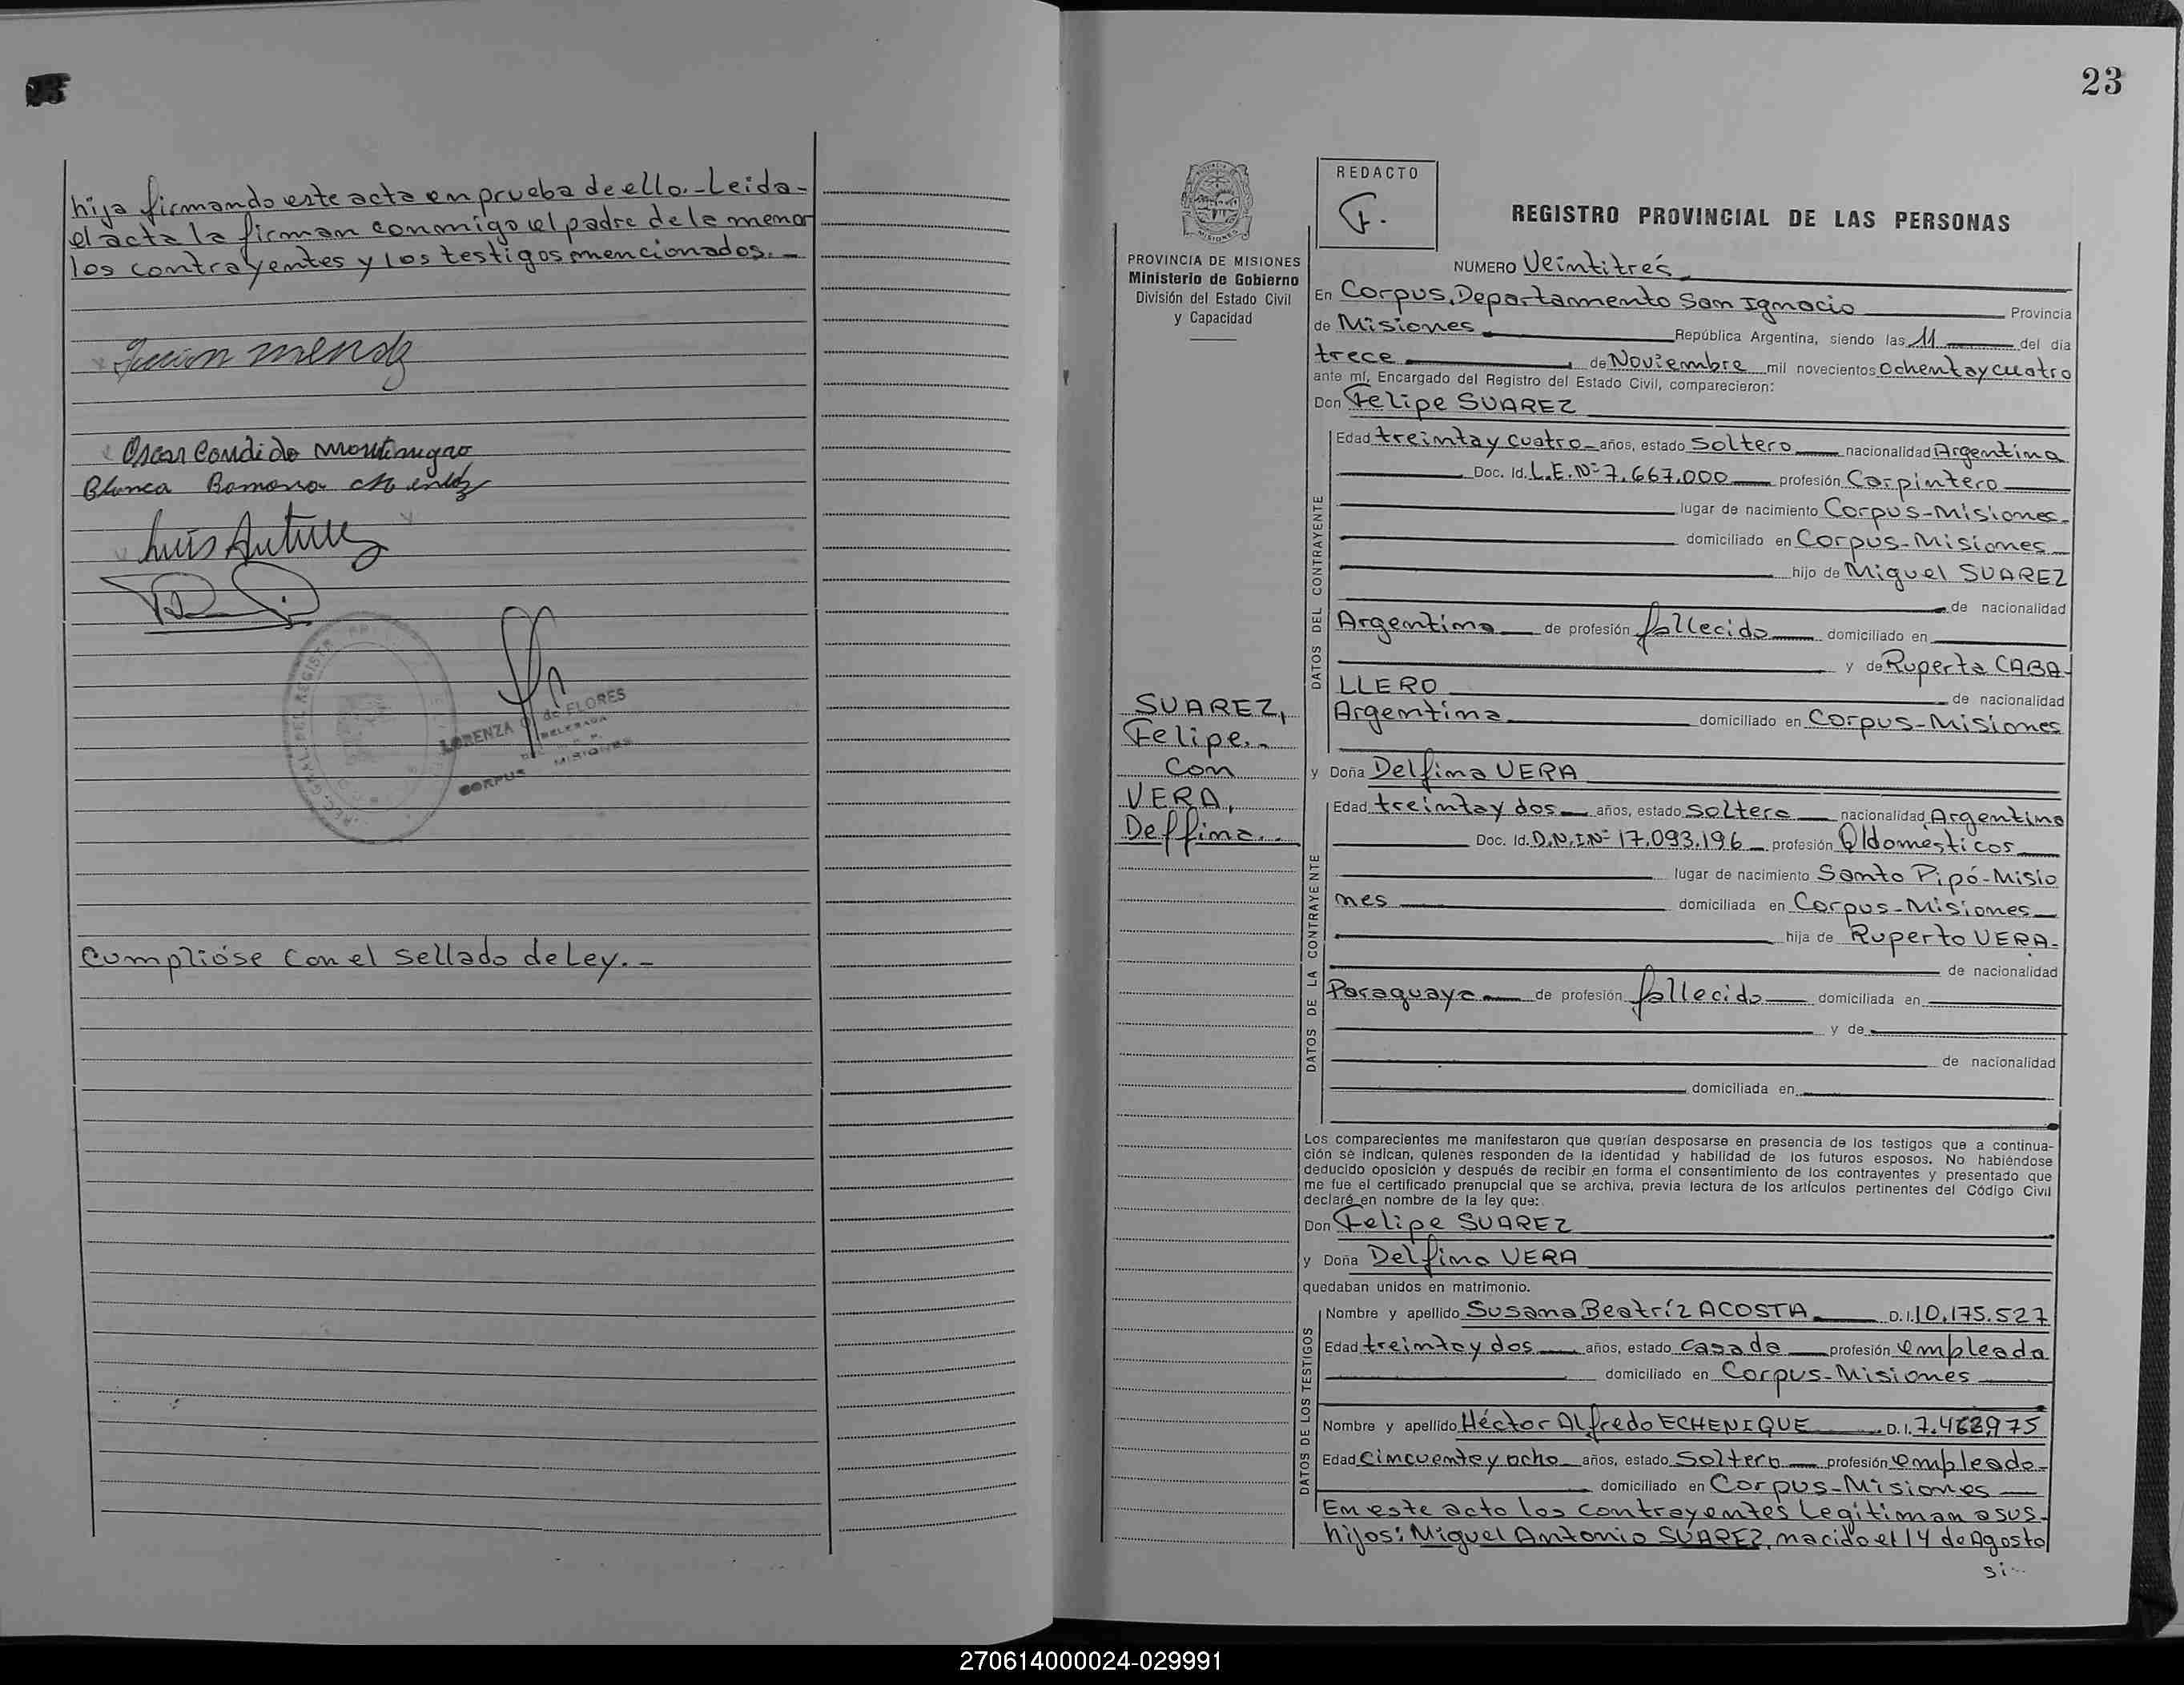 hija firmando este acta en prueba de ello.-Leida-
el acta la firman conmigo el padre de la menor
los contrayentes y los testigos mencionados.-
Oscar Candido Montenegro
Blanca Ramona
Luis
LORENZA de FLORES
DELEGADA
CORPUS MISIONES
Cumplióse con el sellado de Ley.-
23
PROVINCIA DE MISIONES
Ministerio de Gobierno
División del Estado Civil
y Capacidad
SUAREZ,
Felipe.-
Con
VERA,
Delfina.-
REDACTO
F.
REGISTRO PROVINCIAL DE LAS PERSONAS
NUMERO Veintitrés
En Corpus, Departamento San Ignacio Provincia
de Misiones República Argentina, siendo las 11 del día
trece de Noviembre mil novecientos Ochenta y cuatro
ante mí, Encargado del Registro del Estado Civil, comparecieron:
Don Felipe SUAREZ
DATOS DEL CONTRAYENTE
Edad treinta y cuatro años, estado Soltero nacionalidad Argentina
Doc. Id. L.E.Nº 7.667.000 profesión Carpintero
lugar de nacimiento Corpus-Misiones-
domiciliado en Corpus-Misiones
hijo de Miguel SUAREZ
de nacionalidad
Argentina de profesión fallecido domiciliado en
y de Ruperta CABA-
LLERO de nacionalidad
Argentina domiciliado en Corpus-Misiones
y Doña Delfina VERA
DATOS DE LA CONTRAYENTE
Edad treinta y dos años, estado Soltera nacionalidad Argentina
Doc. Id. D.N.I.Nº 17.093.196 profesión Q/domesticos
lugar de nacimiento Santo Pipó-Misio
nes domiciliada en Corpus-Misiones
hija de Ruperto VERA-
de nacionalidad
Paraguaya de profesión fallecido domiciliada en
y de
de nacionalidad
domiciliada en
Los comparecientes me manifestaron que querían desposarse en presencia de los testigos que a continua-
ción se indican, quienes responden de la identidad y habilidad de los futuros esposos. No habiéndose
deducido oposición y después de recibir en forma el consentimiento de los contrayentes y presentado que
me fue el certificado prenupcial que se archiva, previa lectura de los artículos pertinentes del Código Civil
declaré en nombre de la ley que:
Don Felipe SUAREZ
y Doña Delfina VERA
quedaban unidos en matrimonio.
DATOS DE LOS TESTIGOS
Nombre y apellido Susana Beatríz ACOSTA D.I. 10.175.527
Edad treinta y dos años, estado Casada profesión empleada
domiciliado en Corpus-Misiones
Nombre y apellido Héctor Alfredo ECHENIQUE D.I. 7.463975
Edad Cincuenta y ocho años, estado Soltero profesión empleado-
domiciliado en Corpus-Misiones
En este acto los contrayentes Legitiman a sus-
hijos: Miguel Antonio SUAREZ, nacido el 14 de Agosto
si-
270614000024-029991